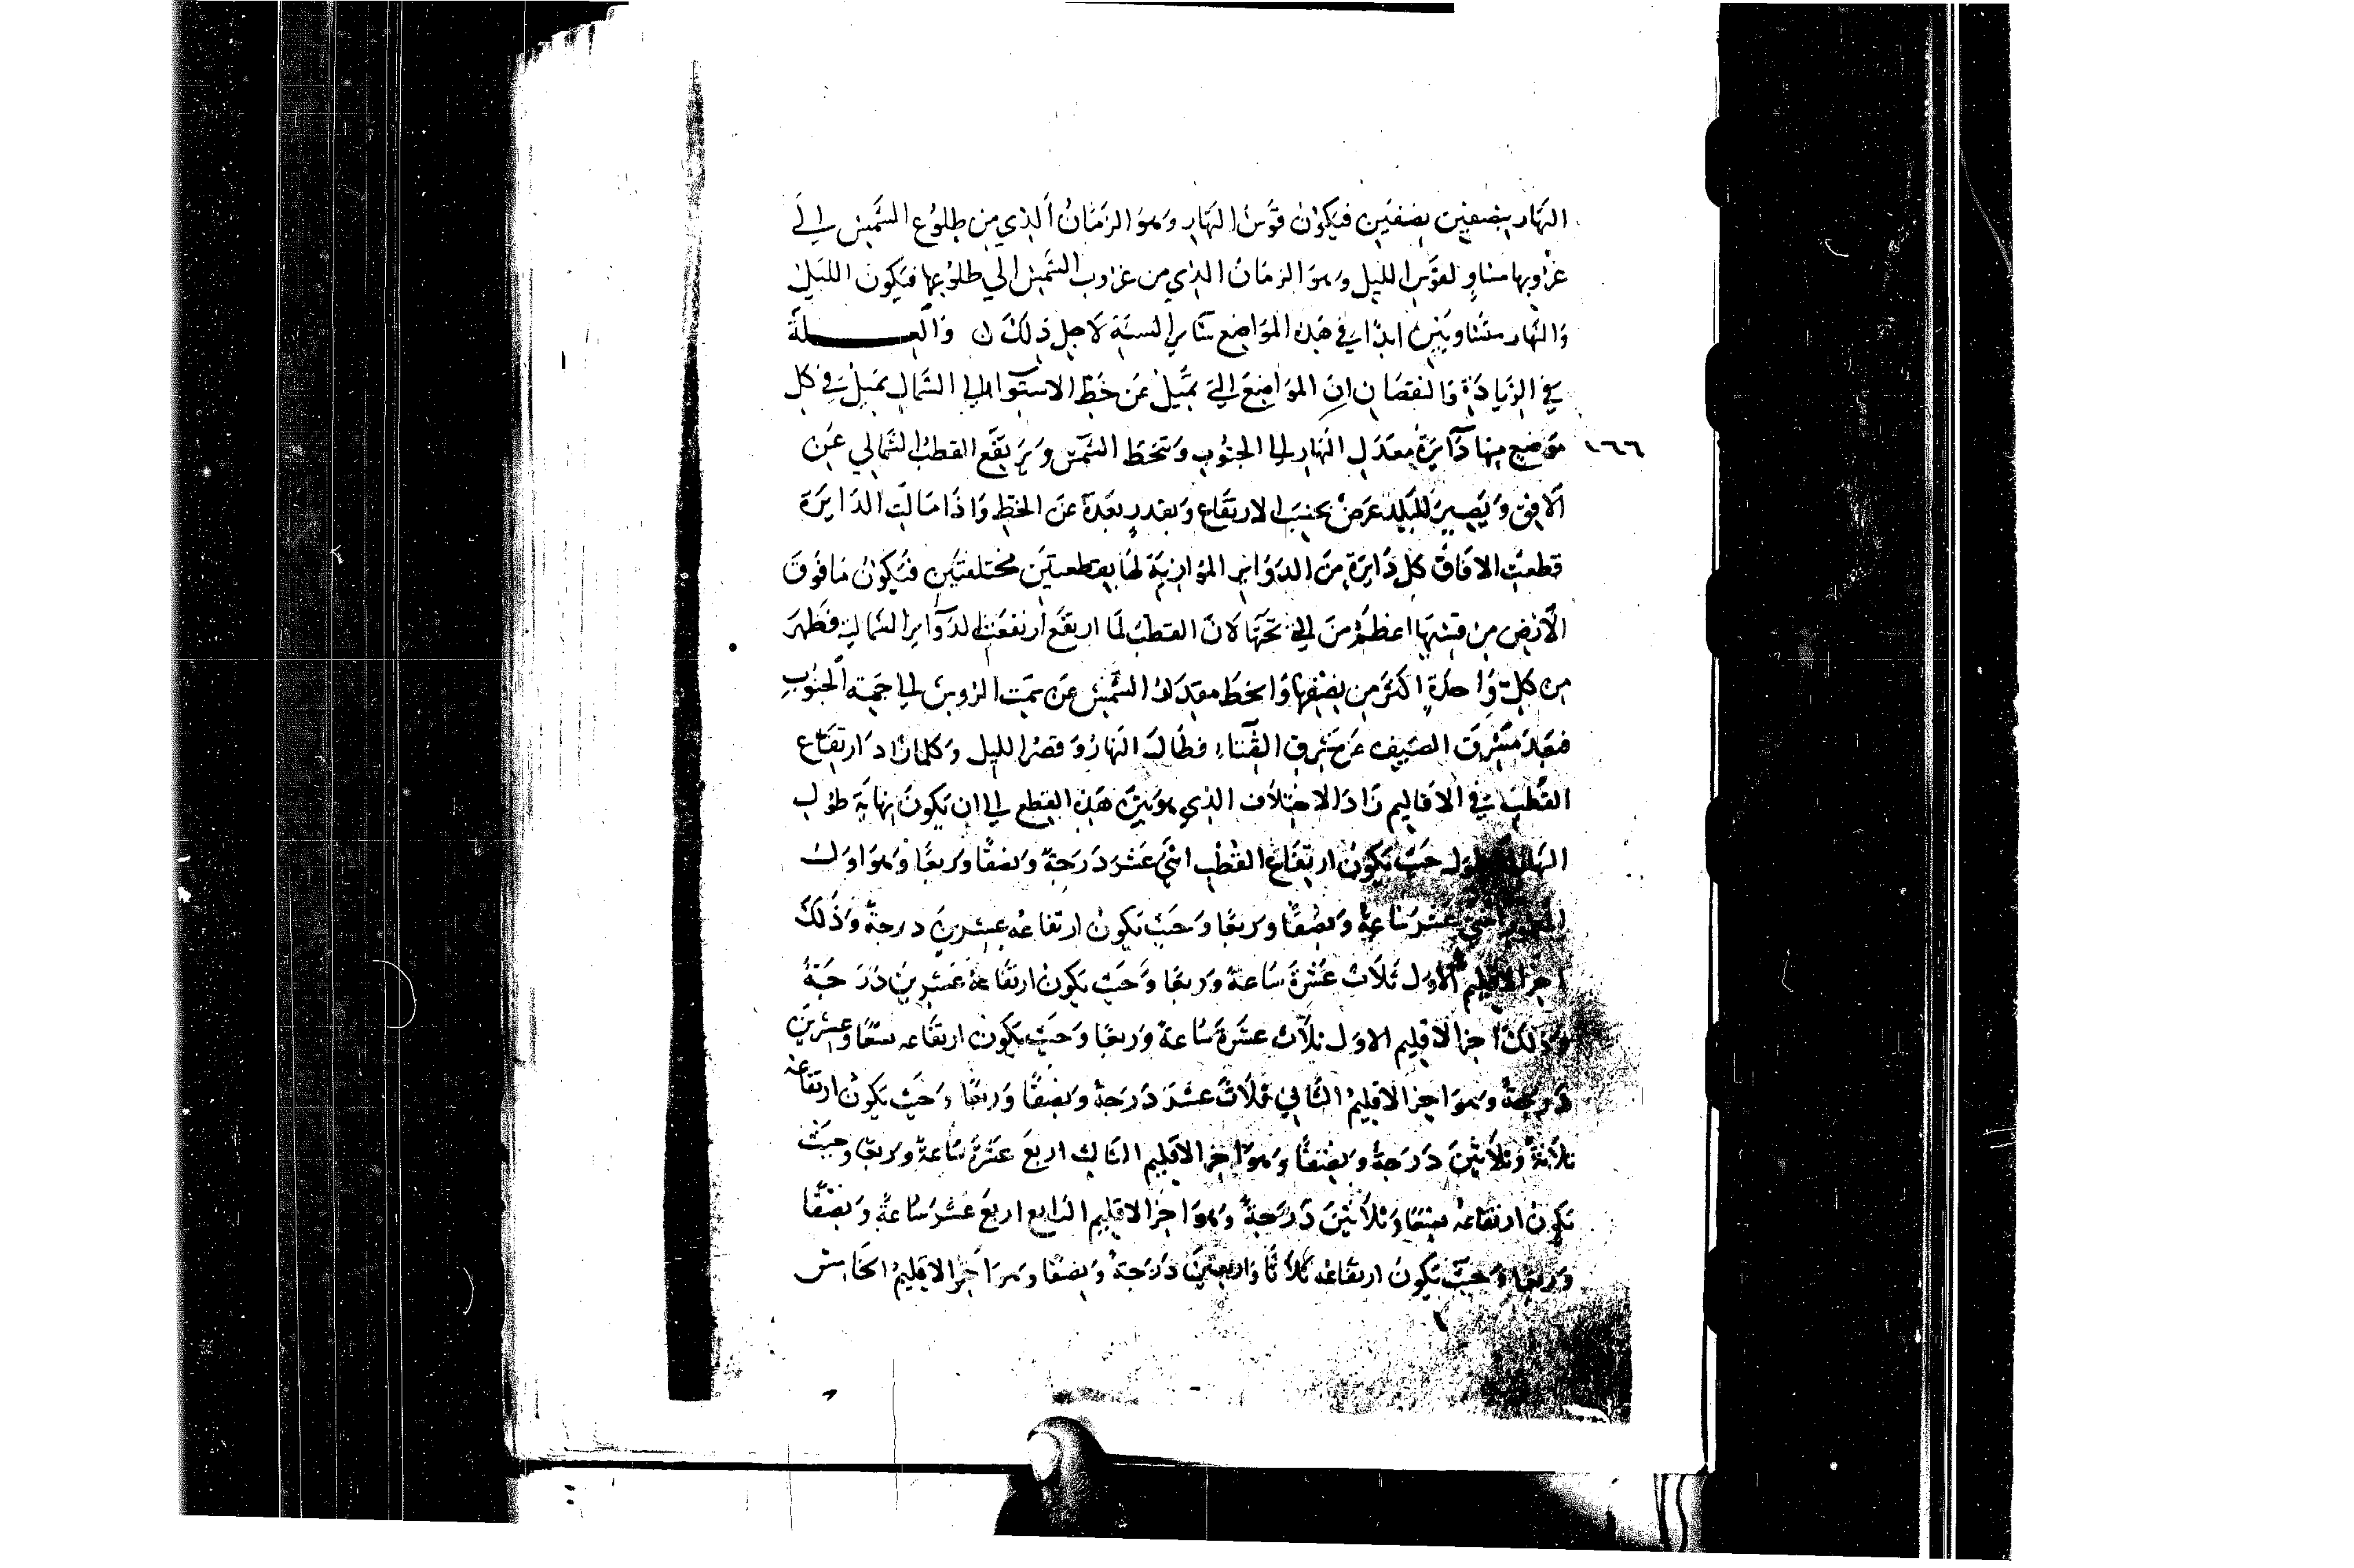 النهار بنصفين نصفين فيكون قوس النهار وهو الزمان الذي من طلوع الشمس إلى
غروبها مساوٍ لقوس الليل وهو الزمان الذي من غروب الشمس الى طلوعها فيكون الليل
والنهار متساويين ابدًا في هذه المواضع سائر السنة لاجل ذلك ن والعلة
في الزيادة والنقصان ان المواضع التي تميل عن خط الاستوا الى الشمال تميل في كل
١٦٦
موضع منها دآيرة معدل النهار الى الجنوب وتنحط الشمس ويرتفع القطب الشمالي عن
الافق ويصير للبلد عرض بحسب الارتفاع وبقدر بعده عن الخط واذا مالت الدايرة
قطعت الافاق كل دايرة من الدواير الموازية لها بقطعتين مختلفتين فيكون ما فوق
الأرض من قسميها اعظم من الذي تحتها لان القطب لما ارتفع ارتفعت الدوآير الشمالية فظهر
من كل واحدة اكثر من نصفها وانحط مقدار الشمس عن سمت الروس الى جهة الجنوب
فبعد مشرق الصيف عن مشرق الشتاء فطال النهار وقصر الليل وكلما زاد ارتفاع
القطب في الاقاليم زاد الاختلاف الذي هو بين هذه القطع الى ان يكون نهاية طول
النهار حيث يكون ارتفاع القطب اثني عشر درجة ونصفًا وربعًا وهو اول
اثني عشر ساعة ونصفًا وربعًا وحيث يكون ارتفاعه عشرين درجة وذلك
اخر الاقليم الاول ثلاث عشرة ساعة وربعًا وحيث يكون ارتفاعه عشرين درجة
وذلك اخر الاقليم الاول ثلاث عشرة ساعة وربعا وحيث يكون ارتفاعه سبعًا وعشرين
درجة وهو اخر الاقليم الثاني ثلاث عشر درجة ونصفًا وربعًا وحيث يكون ارتفاعه
ثلاثة وثلاثين درجة ونصفًا وهو اخر الاقليم الثالث اربع عشرة ساعة وربعًا وحيث
يكون ارتفاعه تسعًا وثلاثين درجة وهو اخر الاقليم الرابع اربع عشر ساعة ونصفًا
وربعًا وحيث يكون ارتفاعه ثلاثًا واربعين درجة ونصفًا وهو اخر الاقليم الخامس